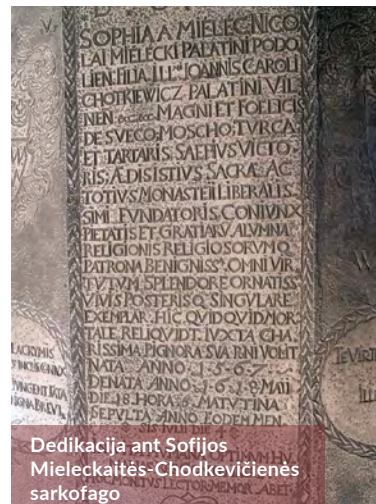 SOPHIA A MIELECNICO
LAI MIELECKI PALATINI PODO
LIEN: FILIA, ILL^MI IOANNIS CAROLI
CHOTKIEWICZ PALATINI VIL
NEN MAGNI ET FOELICIS
DE SVECO, MOSCHO, TVRCA
ET TARTARIS SAEPIVS VICTO
RIS; ÆDIS ISTIVS SACRÆ AC
TOTIVS MONASTEII LIBERALIS
SIMI FVNDATORIS CONIVNX
PIETATIS ET GRATIARV ALVMNA
RELIGIONIS RELIGIOSORVM Q
PATRONA BENIGNISS OMNI VIR
TVTVM SPLENDORE ORNATISS
VIVIS POSTERIS Q SINGVLARE
EXEMPLAR HIC QVIDQVID MOR
TALE RELIQVIDT IVXTA CHA
RISSIMA PIGNORA SVA
NATA ANNO 1567
DENATA ANNO 1619 MAII
DIE 18 HORA MATVTINA
SEPVLTA ANNO EODEM MEN
SIS IVLII DIE
LECTOR MEMOR
LACRYMIS
TE VIRTV
ILL
Dedikacija ant Sofijos
Mieleckaitės-Chodkevičienės
sarkofago